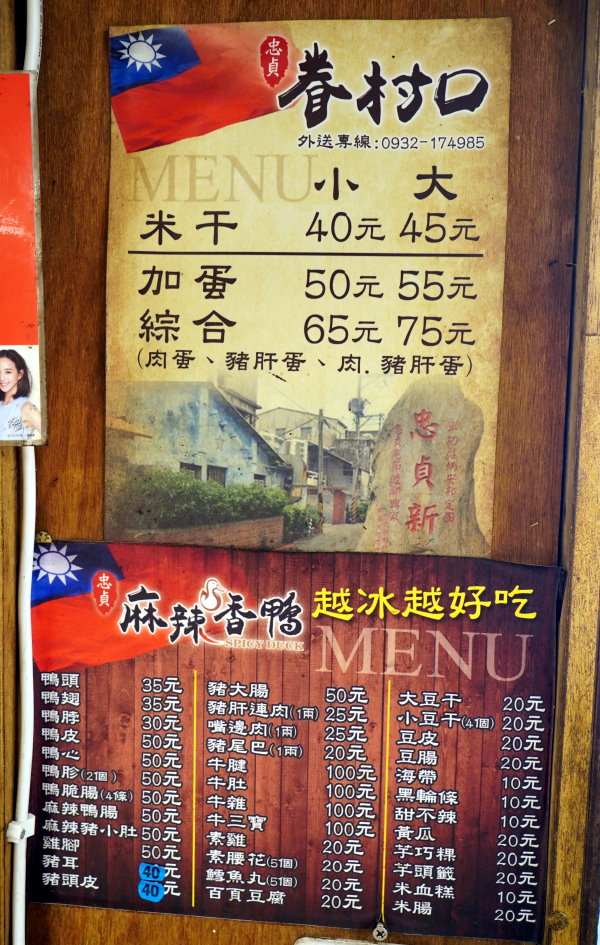 忠貞
眷村口
外送專線:0932-174985
MENU
小 大
米干 40元 45元
加蛋 50元 55元
綜合 65元 75元
(肉蛋、豬肝蛋、肉.豬肝蛋)
忠貞新
忠貞
麻辣香鴨
SPICY DUCK
越冰越好吃
MENU
鴨頭 35元
鴨翅 35元
鴨脖 30元
鴨皮 50元
鴨心 50元
鴨胗(21個) 50元
鴨脆腸(4條) 50元
麻辣鴨腸 50元
麻辣豬小肚 50元
雞腳 50元
豬耳 40元
豬頭皮 40元
豬大腸 50元
豬肝連肉(1兩) 25元
嘴邊肉(1兩) 25元
豬尾巴(1兩) 20元
牛腱 100元
牛肚 100元
牛雜 100元
牛三寶 100元
素雞 20元
素腰花(51個) 20元
鱈魚丸(51個) 20元
百頁豆腐 20元
大豆干 20元
小豆干(41個) 20元
豆皮 20元
豆腸 20元
海帶 10元
黑輪條 10元
甜不辣 10元
黃瓜 20元
芋巧粿 20元
芋頭籤 20元
米血糕 10元
米腸 20元